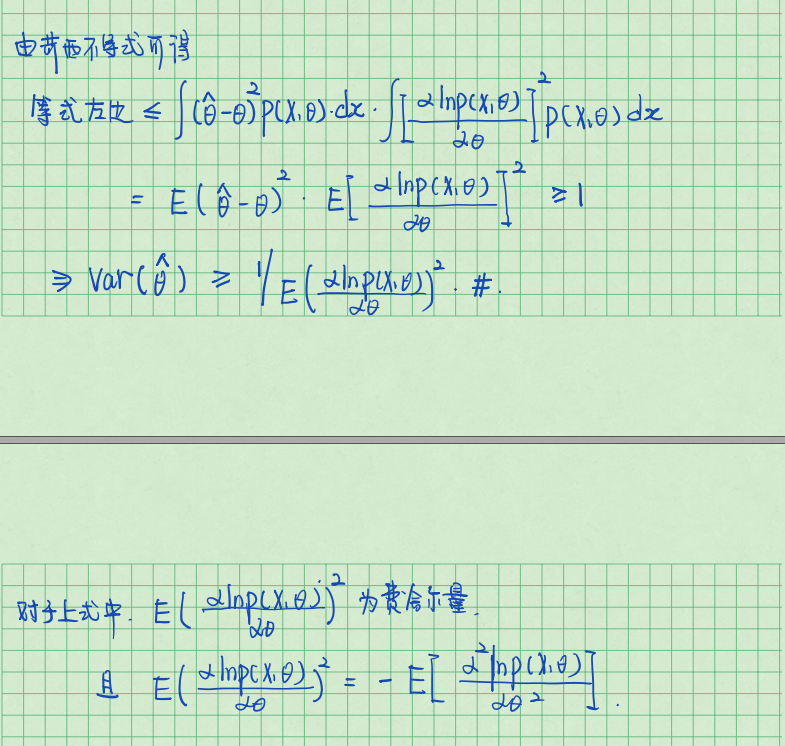 由柯西不等式可得
等式左边 ≤ ∫(θ̂-θ)²p(x,θ)·dx·∫[∂lnp(x,θ)/∂θ]²p(x,θ)dx
= E(θ̂-θ)²·E[∂lnp(x,θ)/∂θ]² ≥ 1
⇒ Var(θ̂) ≥ 1/E(∂lnp(x,θ)/∂θ)². #.
对于上式中. E(∂lnp(x,θ)/∂θ)² 为费舍尔量.
且 E(∂lnp(x,θ)/∂θ)² = -E[∂²lnp(x,θ)/∂θ²].